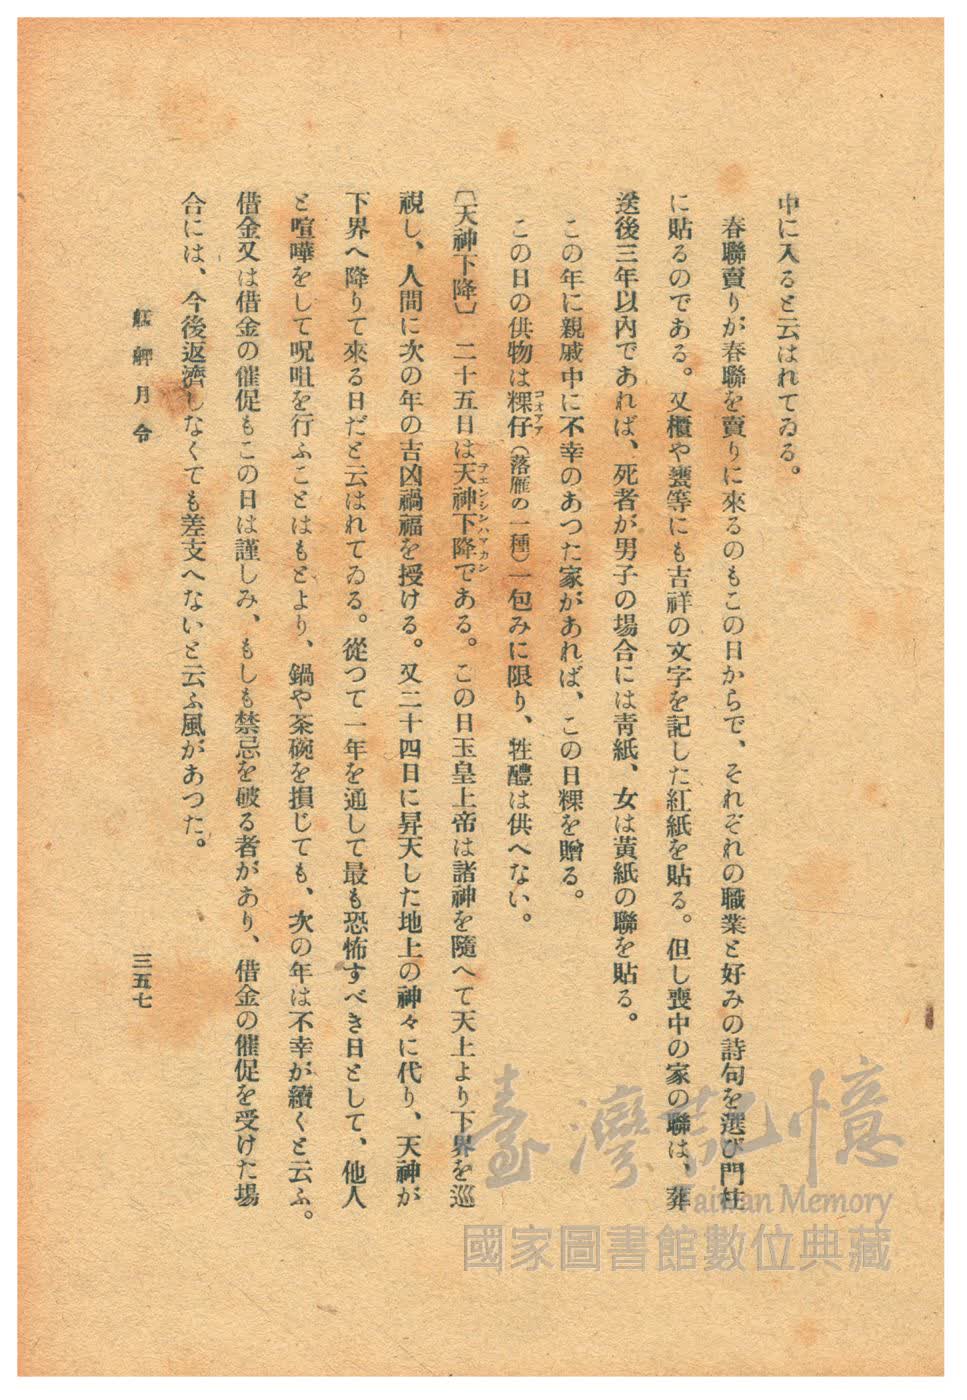 中に入ると云はれてゐる。
春聯賣りが春聯を賣りに來るのもこの日からで、それぞれの職業と好みの詩句を選び門柱
に貼るのである。又櫃や甕等にも吉祥の文字を記した紅紙を貼る。但し喪中の家の聯は、葬
送後三年以內であれば、死者が男子の場合には靑紙、女は黃紙の聯を貼る。
この年に親戚中に不幸のあつた家があれば、この日粿を贈る。
この日の供物は粿仔(落雁の一種)一包みに限り、牲醴は供へない。
コオアア
〔天神下降〕 二十五日は天神下降である。この日玉皇上帝は諸神を隨へて天上より下界を巡
テエンシンハアカン
視し、人間に次の年の吉凶禍福を授ける。又二十四日に昇天した地上の神々に代り、天神が
下界へ降りて來る日だと云はれてゐる。從つて一年を通して最も恐怖すべき日として、他人
と喧嘩をして呪咀を行ふことはもとより、鍋や茶碗を損じても、次の年は不幸が續くと云ふ。
借金又は借金の催促もこの日は謹しみ、もしも禁忌を破る者があり、借金の催促を受けた場
合には、今後返濟しなくても差支へないと云ふ風があつた。
艋舺月令
三五七
臺灣記憶
Taiwan Memory
國家圖書館數位典藏